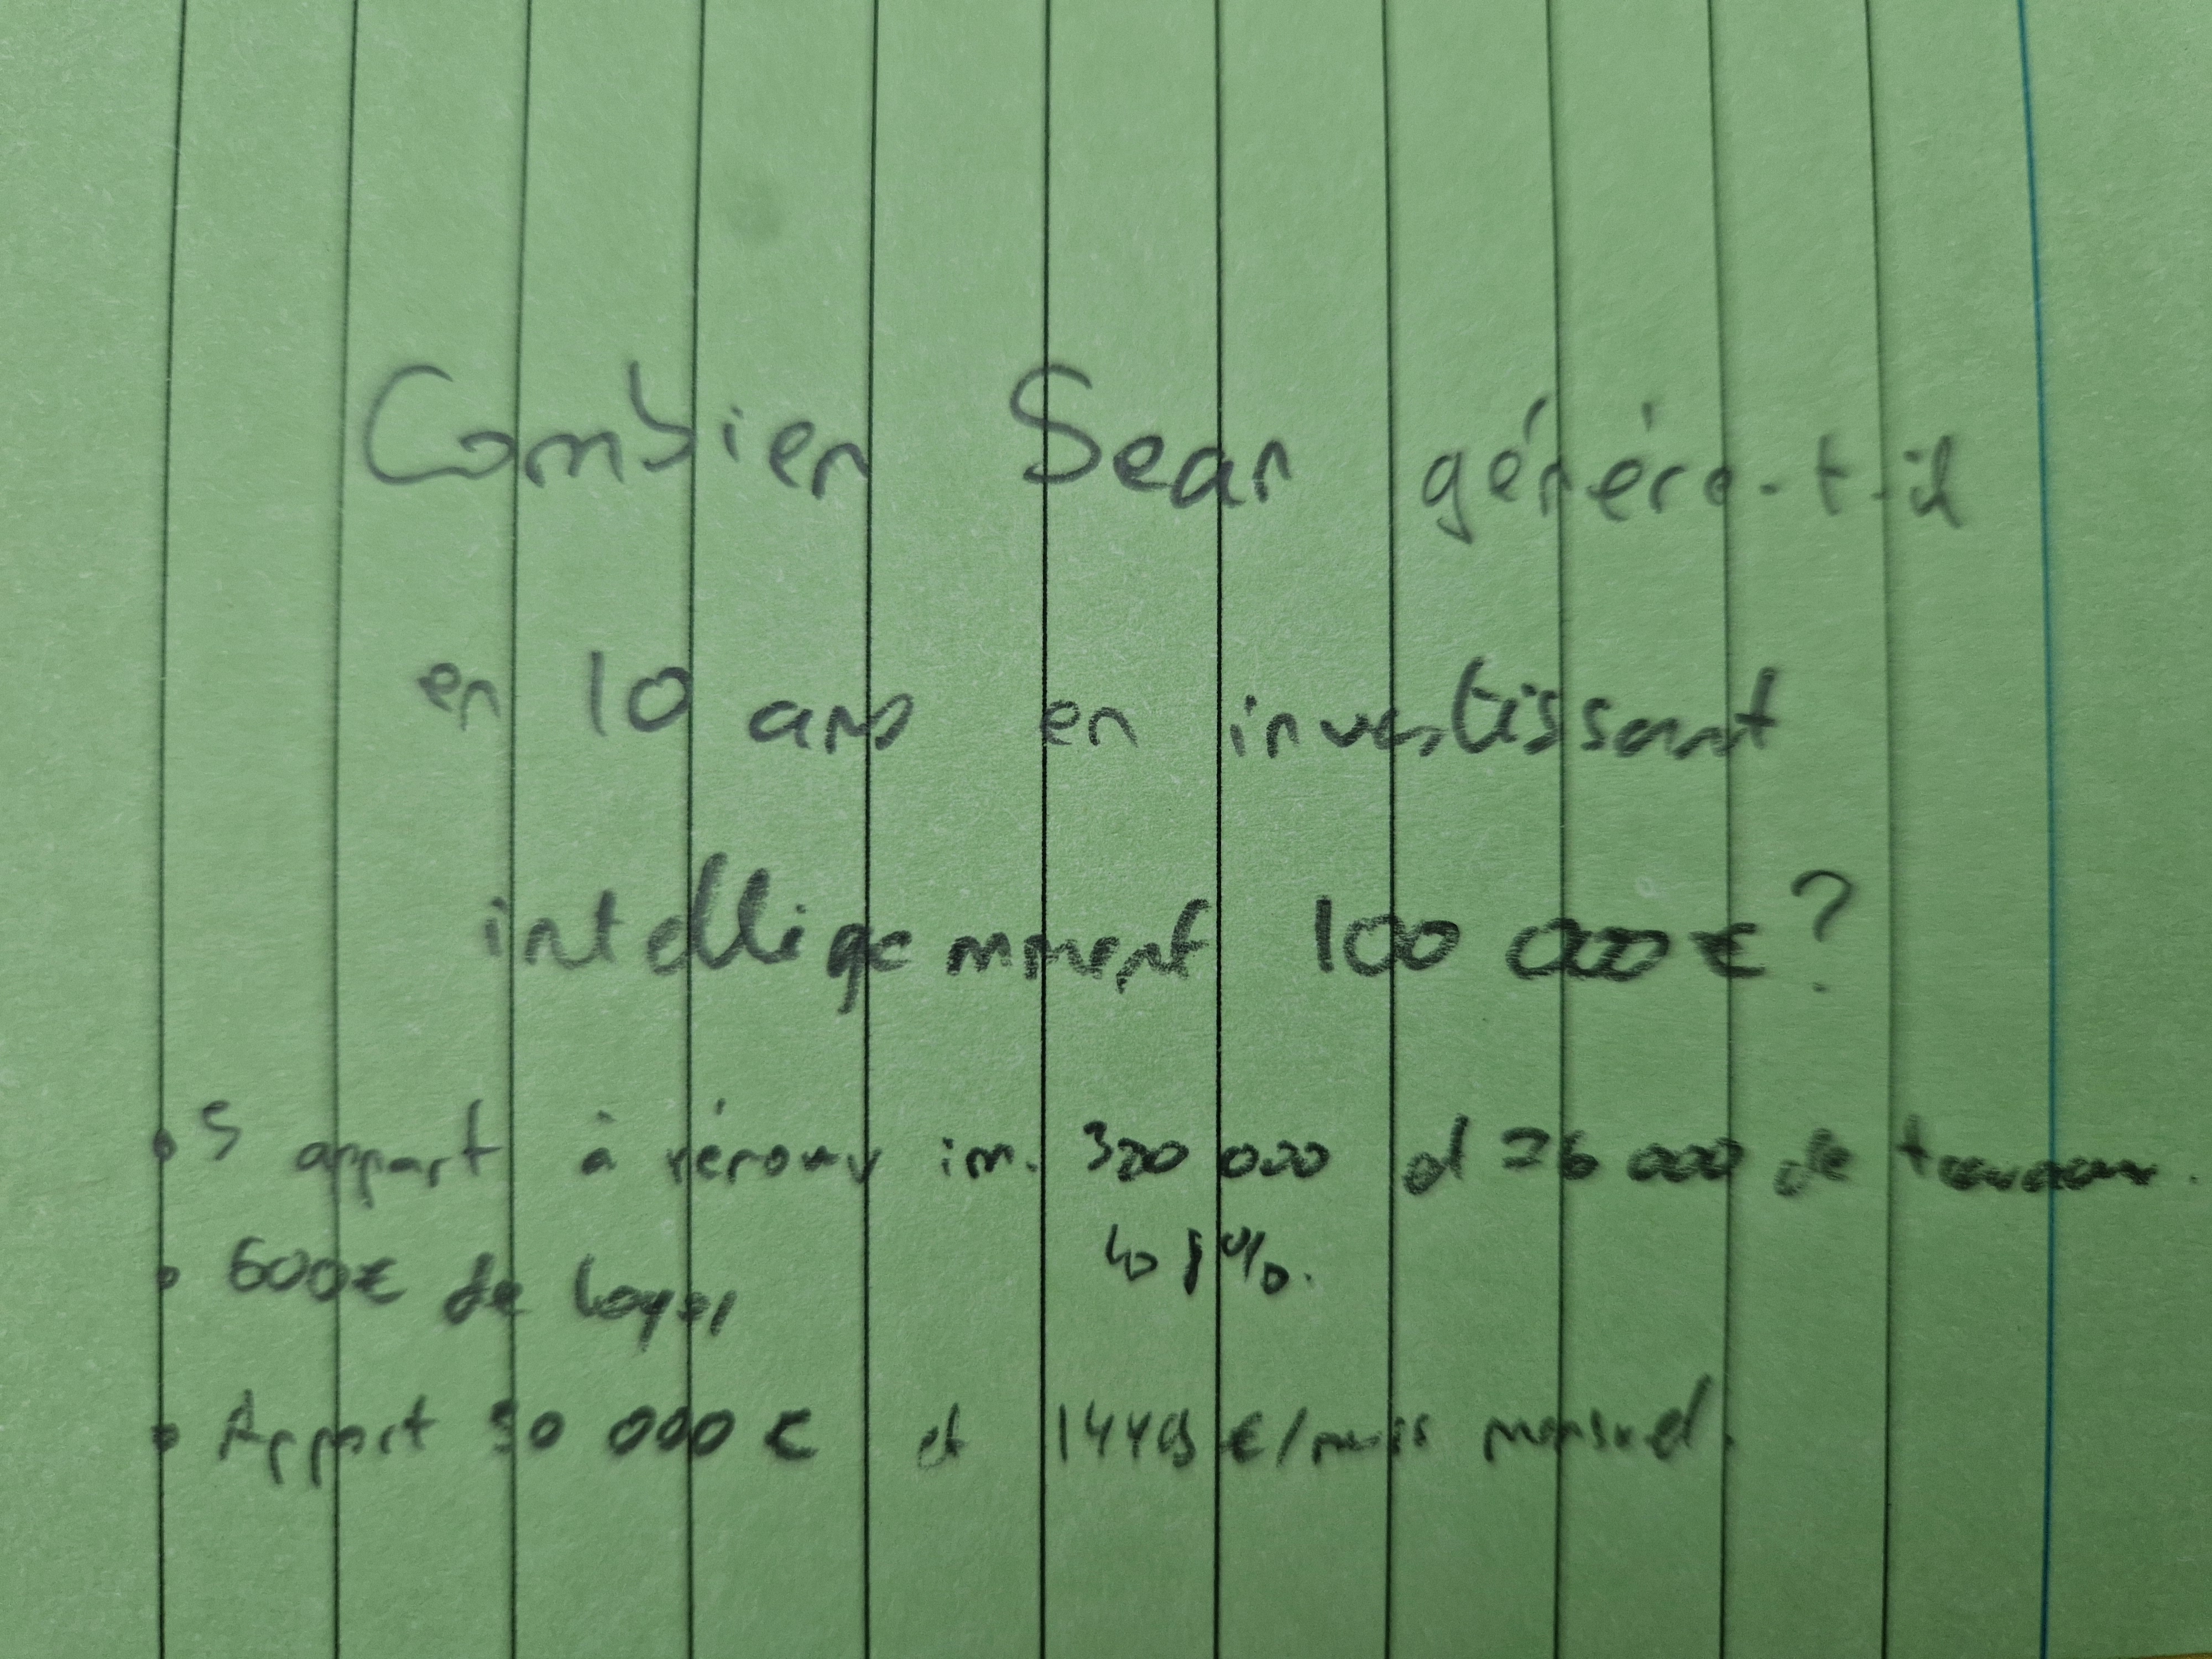 Combien Sean génère-t-il
en 10 ans en investissant
intelligemment 100 000 € ?
• 5 appart à rénover im. 320 000 et 26 000 de travaux.
• 600€ de loyer
↳ 8%.
• Apport 30 000 € et €/mois mensuel.